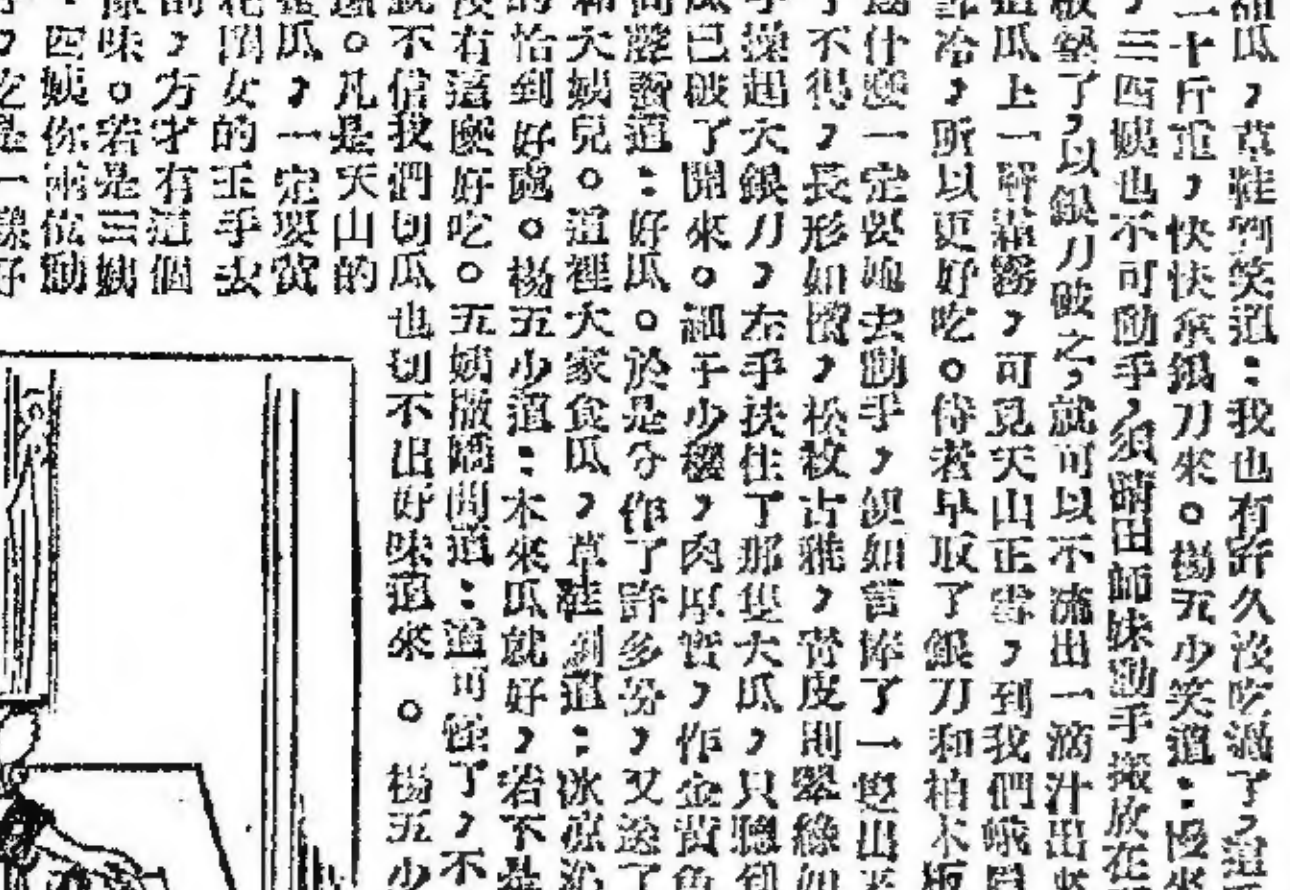 甜瓜，草鞋劉笑道：我也有許久沒吃過了，這
二十斤重，快快拿銀刀來。楊五少笑道：慢來
，三四姨也不可動手，須晴田師妹動手搬放在
墊了，以銀刀破之，就可以不流出一滴汁出來
這瓜上一層霜霧，可見天山正雪，到我們峨
冷，所以更好吃。侍者早取了銀刀和柏木板
為什麼一定要她去動手，但如言捧了一隻出來
了不得，長形如 ，松紋古雅，青皮則翠綠如
手操起大銀刀，左手扶住了那隻大瓜，只聽到
瓜已破了開來。細子少 ，肉厚實，作金黃色
齊聲贊道：好瓜。於是分作了許多份，又送了
和大姨兒。這裡大家食瓜，草鞋劉道：冰涼沁
的恰到好處。楊五少道：本來瓜就好，若不是
沒有這麼好吃。五姨撒嬌問道：這可怪了，不
就不信我們切瓜也切不出好味道來。楊五少
。凡是天山的
瓜，一定要黃
花閨女的玉手去
，方才有這個
味。若是三姨
四姨你兩位動
，吃是一樣好